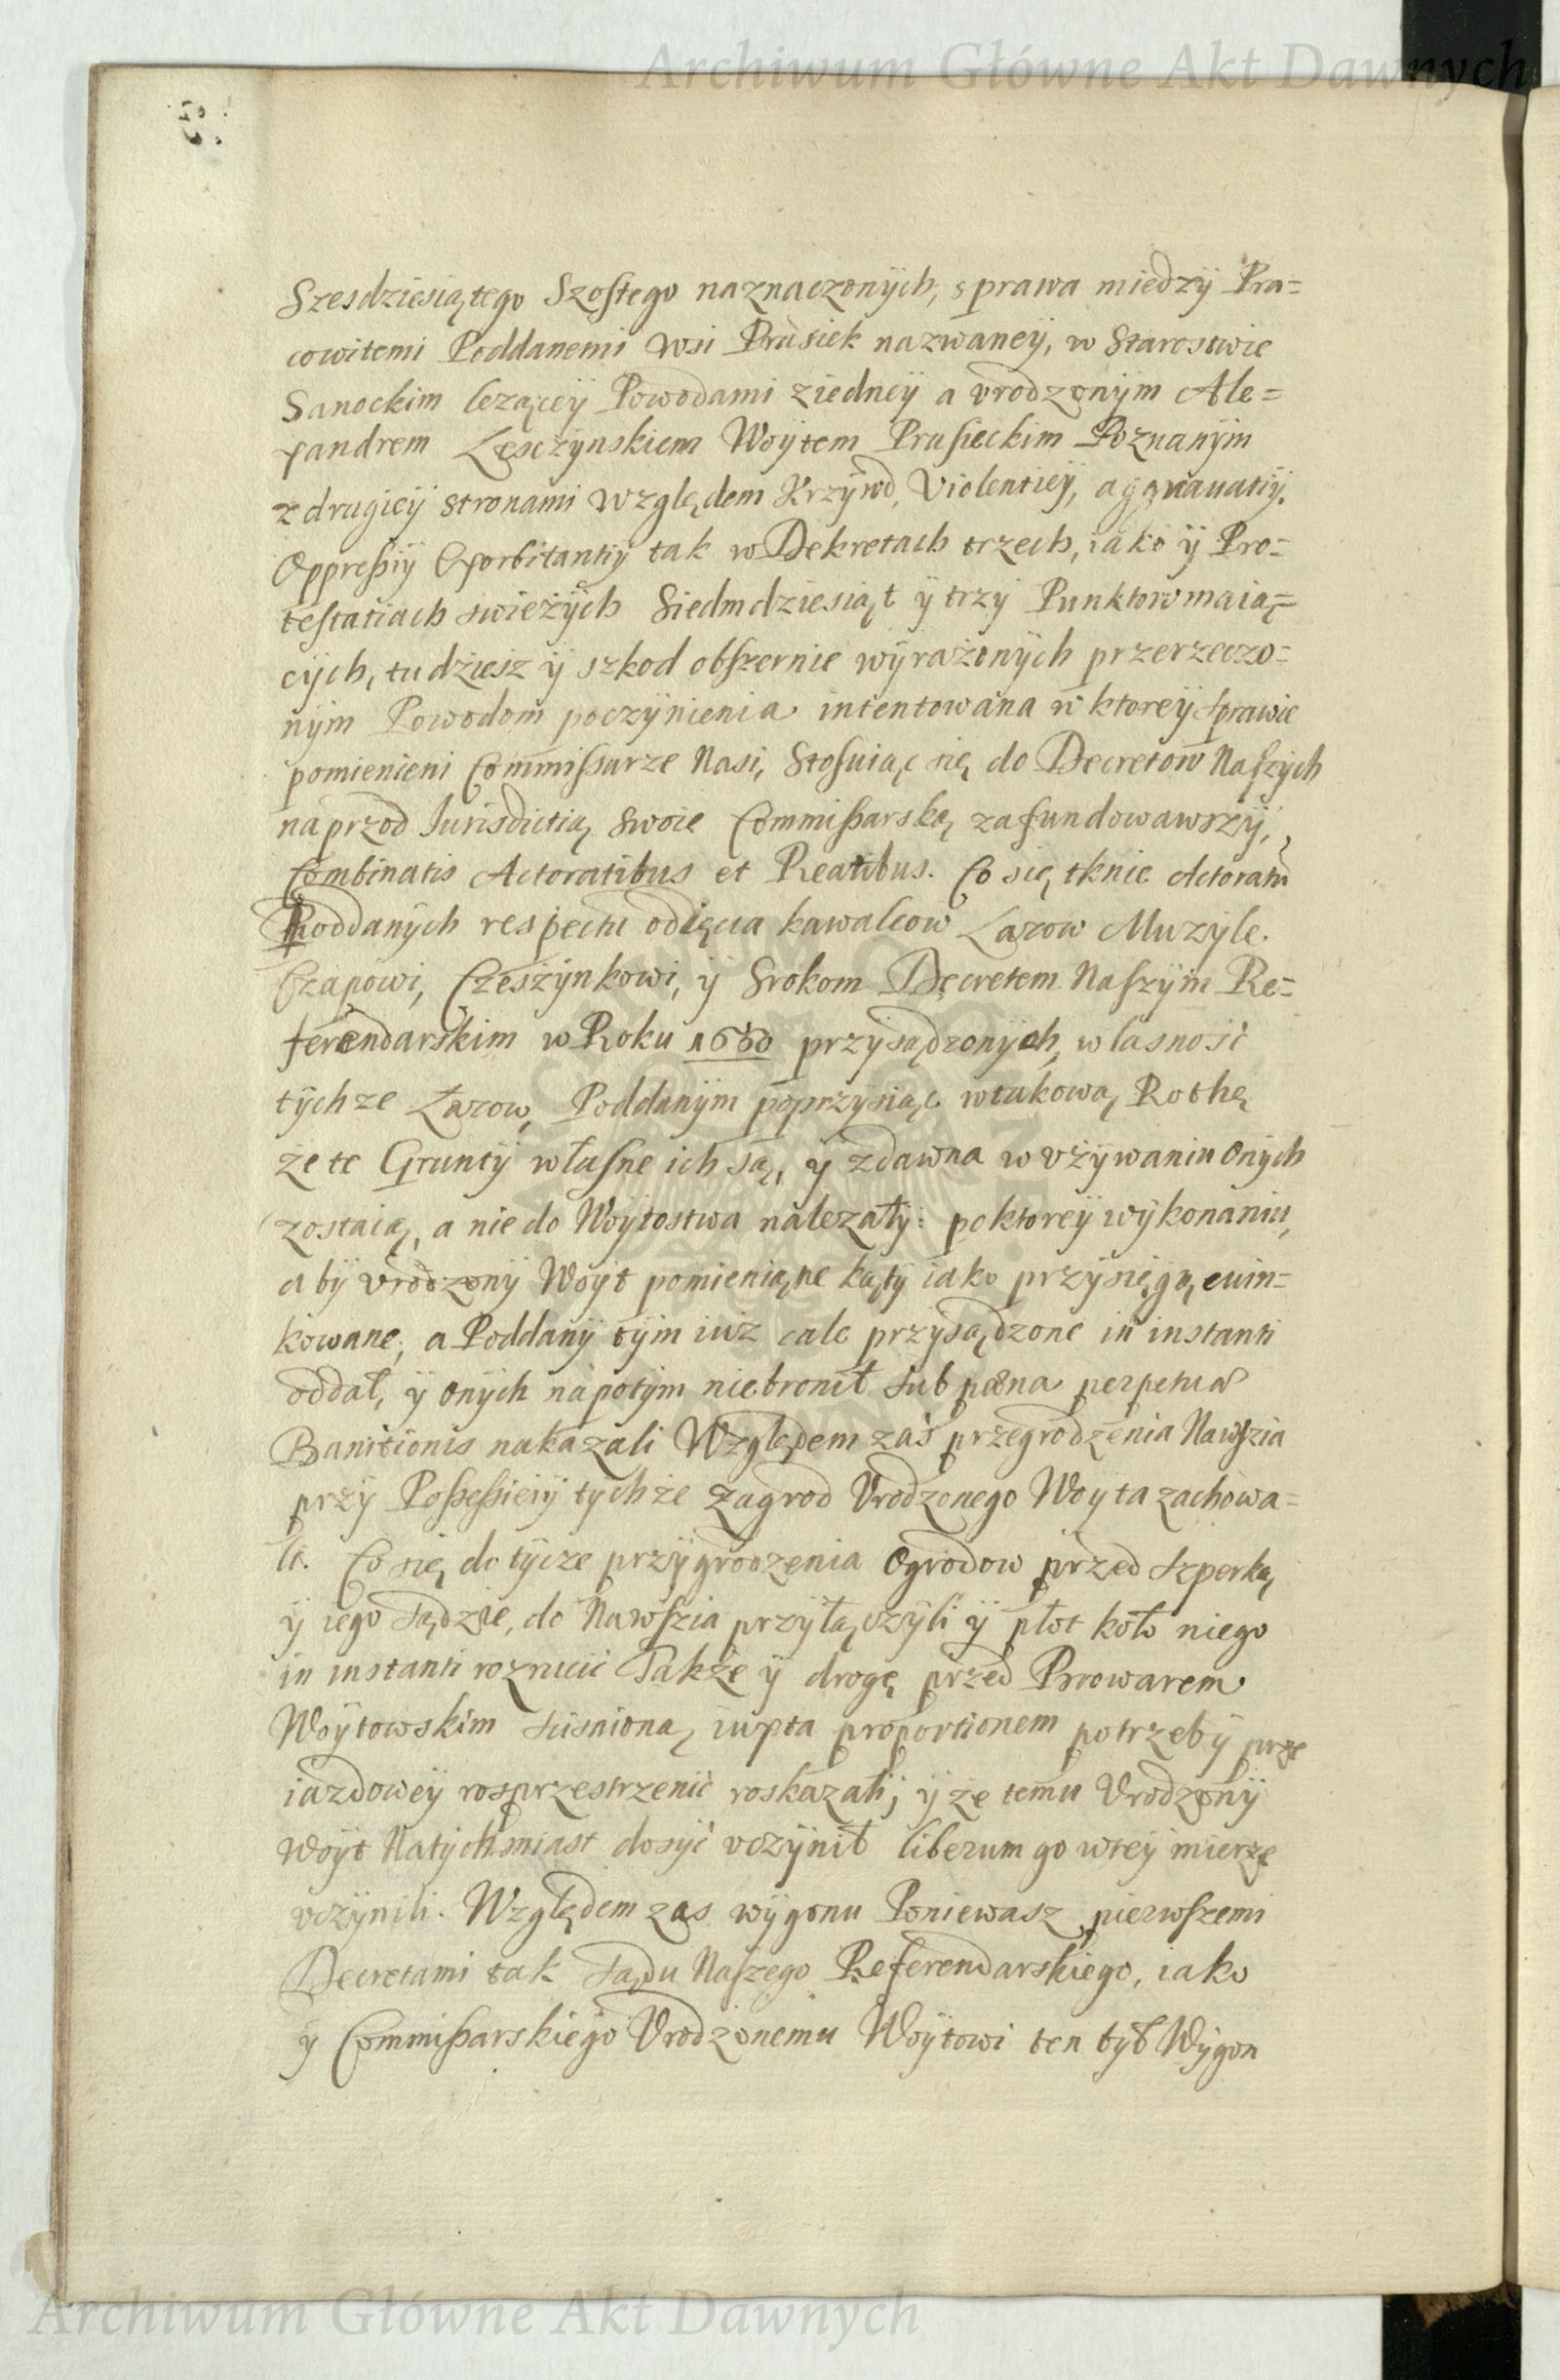 Archiwum Główne Akt Dawnych
Szesdziesiątego Szostego naznaczonÿch, sprawa miedzÿ Pra=
cowitemi Poddanemi Wsi Prusiek nazwaneÿ, w Starostwie
Sanockim lezącеÿ Powodami ziedneÿ a vrodzonÿm Ale=
xandrem Lesczÿnskiem Woÿtem Prusieckim Poznanÿm
z drugieÿ stronami względem Krzÿwd, Violentieÿ, aggrauatiÿ,
Oppressiÿ Exorbitantiÿ tak w Dekretach trzech, iako ÿ Pro=
testatiach swieżÿch Siedmdziesiąt ÿ trzÿ Punktow maią=
cÿch, tudziesz ÿ szkod obszernie wÿrażonÿch przerzeczo=
nÿm Powodom poczÿnienia intentowana w ktoreÿ sprawie
pomienieni Commissarze Nasi, Stosuiąc się do Decretow Naszÿch
naprzod Jurisdictią Swoie Commissarską zafundowawszÿ,
Combinatis Actoratibus et Reatibus. Co się tknie Actoratu
Poddanÿch respectu odięcia kawalcow Lazow Muzÿle.
Czapowi, Czeszÿnkowi, ÿ Srokom Decretem Naszÿm Re=
ferendarskim w Roku 1660 przÿsądzonÿch, wlasnosć
tÿchze Lazow, Poddanÿm poprzÿsiąc wtakową Rothę
że te Gruntÿ własne ich są, ÿ zdawna w vżÿwaniu onÿch
zostaią, a nie do Woÿtostwa nalezałÿ: po ktoreÿ wÿkonaniu,
abÿ vrodzonÿ Woÿt pomienione kątÿ iako przÿsięgą ewin=
kowane, a Poddanÿ tÿm iuż cale przÿsądzone in instanti
oddał, ÿ onÿch napotÿm niebronił sub pæna perpetuæ
Banitionis nakazali Względem zaś przegrodzenia Nawszia
przÿ Possessieiÿ tÿchże zagrod Vrodzonego Woÿta zachowa=
li. Co się do tÿcze przÿgrodzenia Ogrodow przed Szperką
ÿ iego Sądzie, do Nawszia przÿłączÿli ÿ płot koło niego
in instanti rozrucić Także ÿ drogę przed Browarem
Woÿtowskim sciśnioną iuxta proportionem potrzebÿ prze
iazdoweÿ rosprzestrzenić roskazali; ÿ że temu Vrodzonÿ
Woÿt Natÿchmiast dosÿć vczÿnił liberum go wteÿ mierze
vczÿnili. Względem zas wÿgonu Poniewasz pierwszemi
Decretami tak Sądu Naszego Referendarskiego, iako
ÿ Commissarskiego Vrodzonemu Woÿtowi ten bÿł Wÿgon
Archiwum Główne Akt Dawnych